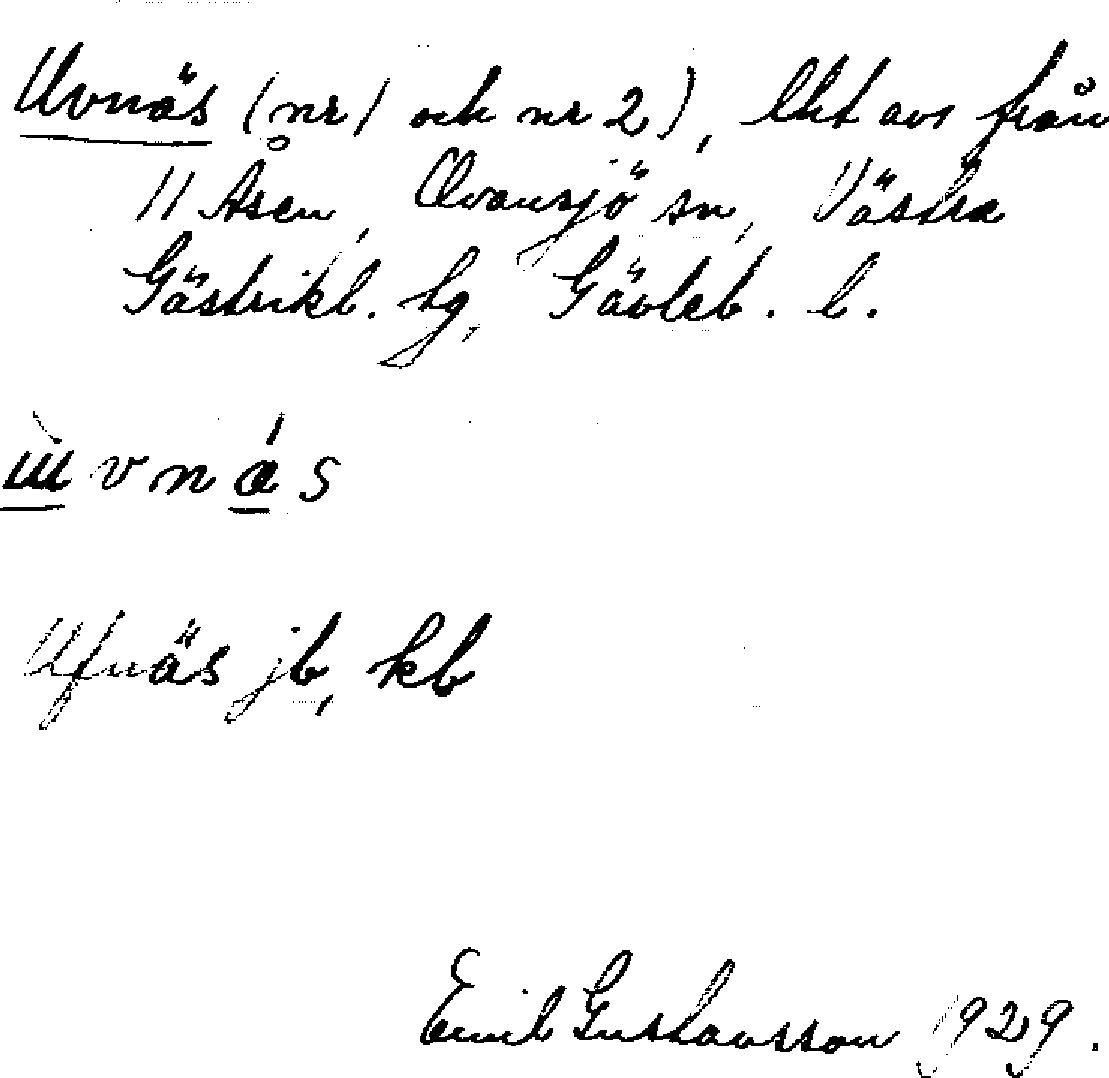 Uvnäs (nr 1 och nr 2), lht avs från
11 Åsen, Ovansjö sn, Västra
Gästrikl. hg, Gävleb. l.
ùvnás
Ufnäs jb, kb
Emil Gustavsson 1929.